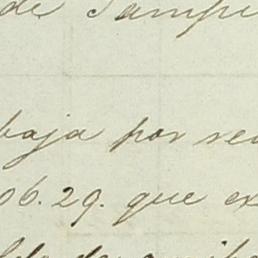 de Sampe
baja por re
06.29. que ex